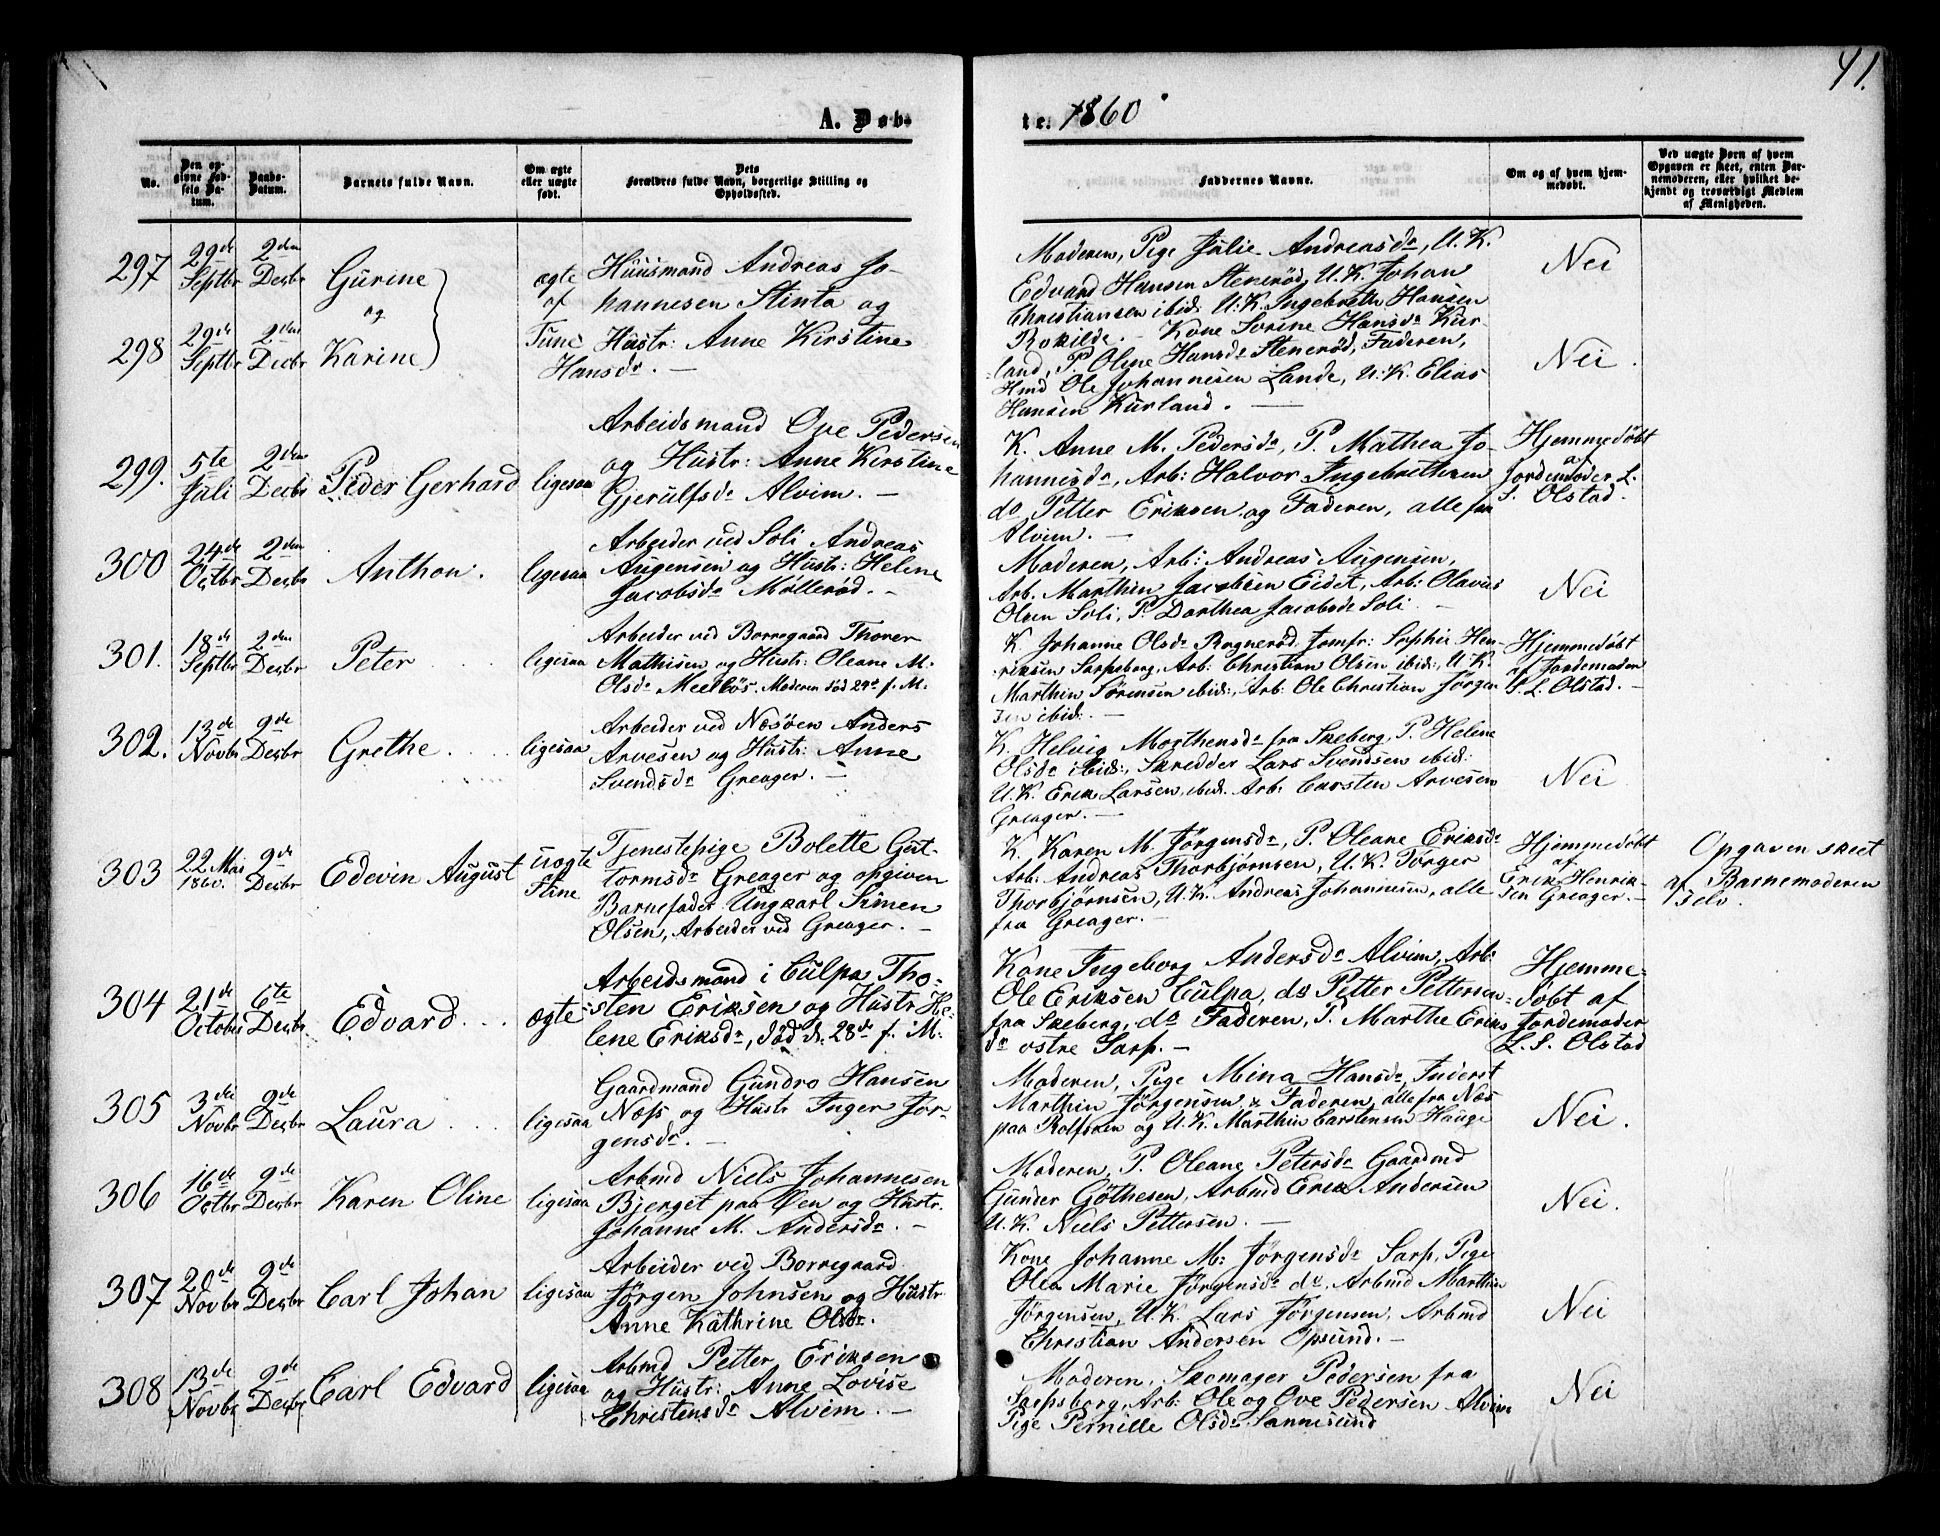 41.
A. Døb-
te. 1860
No.
Den op-
givne Fød-
sels Da-
tum.
Daabs-
Datum.
Barnets fulde Navn.
Om ægte
eller uægte
født.
Dets
Forældres fulde Navn, borgerlige Stilling og
Opholdssted.
Faddernes Navne.
Om og af hvem hjem-
medøbt.
Ved uægte Børn af hvem
Opgaven er skeet, enten Bar-
nemoderen, eller hvilket be-
kjendt og troværdigt Medlem
af Menigheden.
297
29de
Septbr
2den
Decbr
Gurine
og
298
29de
Septbr
2den
Decbr
Karine
ægte
af
Tune
Huusmand Andreas Jo-
hannesen Stinta og
Hustr: Anne Kirstine
Hansdr. —
Moderen, Pige Julie Andreasdr, U.K.
Edvard Hansen Stenerød, U.K. Johan
Christiansen ibid: U.K. Ingebreth Hansen
Rokilde. – Kone Sorine Hansdr Kur-
land, P. Oline Hansdr Stenerød, Faderen,
Hmd Ole Johannesen Lande, U.K. Elias
Hansen Kurland. —
Nei
Nei.
299.
5te
Juli
2den
Decbr
Peder Gerhard
ligesaa
Arbeidsmand Ove Pedersen
og Hustr: Anne Kirstine
Gjerulfsdr Alvim. —
K. Anne M. Pedersdr, P. Mathea Jo-
hannesdr, Arb: Halvor Ingebrethsen
do Petter Eriksen og Faderen, alle fra
Alvim. —
Hjemmedøbt
af
Jordemoder L.
S. Olstad.
300
24de
Octbr
2den
Decbr
Anthon.
ligesaa
Arbeider ved Soli Andreas
Augensen og Hustr: Helene
Jacobsdr Møllerød. —
Moderen, Arb: Andreas Augensen,
Arb. Marthin Jacobsen Eidet, Arb: Olavus
Olsen Soli, P. Dorthea Jacobsdr Soli. —
Nei
301.
18de
Septbr
2den
Decbr
Peter
ligesaa
Arbeider ved Borregaard Thorer
Mathisen og Hustr: Oleane M.
Olsdr Meelløs, Moderen død 29de f. M.
K. Johanne Olsdr Rognerød, Jomfr: Sophie Hen-
riksen Sarpsborg, Arb: Christian Olsen ibid:, U.K.
Marthin Sørensen ibid:, Arb: Ole Christian Jørgen
sen ibid: —
Hjemmedøbt
af Jordemoder
S. L. Olstad. —
302.
13de
Novbr
9de
Decbr
Grethe
ligesaa
Arbeider ved Næsøen Anders
Arvesen og Hustr: Anne
Svendsdr Greager. —
K. Helvig Morthensdr fra Skeberg, P. Helene
Olsdr ibid:, Skredder Lars Svendsen ibid:
U.K. Erik Larsen, ibid. Arb: Carsten Arvesen
Greager. —
Nei
303
22 Mai
1860.
9de
Decbr
Edevin August
uægte
Tune
Tjenestepige Bolette Gut-
tormsdr Greager og opgiven
Barnefader Ungkarl Simen
Olsen, Arbeider ved Greager. —
K. Karen M. Jørgensdr, P. Oleane Eriksdr
Arb: Andreas Thorbjørnsen, U.K. Torger
Thorbjørnsen, U.K. Andreas Johannesen, alle
fra Greager. —
Hjemmedøbt
af
Erik Henrik-
sen Greager. —
Opgaven skeet
af Barnemoderen
selv.
304
21de
October
6te
Decbr.
Edvard
ægte
Arbeidsmand i Culpa Tho-
sten Eriksen og Hustr. He-
lene Eriksdr, død d. 28de f. M.
Kone Ingeborg Andersdr Alvim, Arb:
Ole Eriksen Culpa, do Petter Pettersen
fra Skeberg, do Faderen, P. Marthe Eriks
dr østre Sarp. —
Hjemme-
døbt af
Jordemoder
L. S. Olstad
305
3die
Novbr
9de
Decbr
Laura
ligesaa
Gaardmand Gundro Hansen
Næss og Hustr Inger Jør-
gensdr. —
Moderen, Pige Mina Hansdr, Inderst
Marthin Jørgensen & Faderen, alle fra Næs
paa Rolfsøen og U.K. Marthin Carstensen Hauge
Nei.
306
16de
Octbr
9de
Decbr
Karen Oline
ligesaa
Arbmd Niels Johannesen
Bjerget paa Øen og Hustr.
Johanne M. Andersdr. —
Moderen, P. Oleane Petersdr Gaardmd
Gunder Gøthesen, Arbmd Erik Andersen
U.K. Niels Pettersen. —
Nei.
307
20de
Novbr
9de
Decbr
Carl Johan
ligesaa
Arbeider ved Borregaard
Jørgen Johnsen og Hustr
Anne Kathrine Olsdr.
Kone Johanne M: Jørgensdr Sarp, Pige
Olea Marie Jørgensdr do, Arbmd Marthin
Jørgensen, U.K. Lars Jørgensen, Arbmd
Christian Andersen Opsund. —
Nei
308
13de
Novbr
9de
Decbr
Carl Edvard
ligesaa
Arbmd Petter Eriksen
og Hustr: Anne Lovise
Christensdr Alvim. —
Moderen, Skomager Pedersen fra
Sarpsborg, Arb: Ole og Ove Pedersen Alvim
Pige Pernille Olsdr Sannesund
Nei